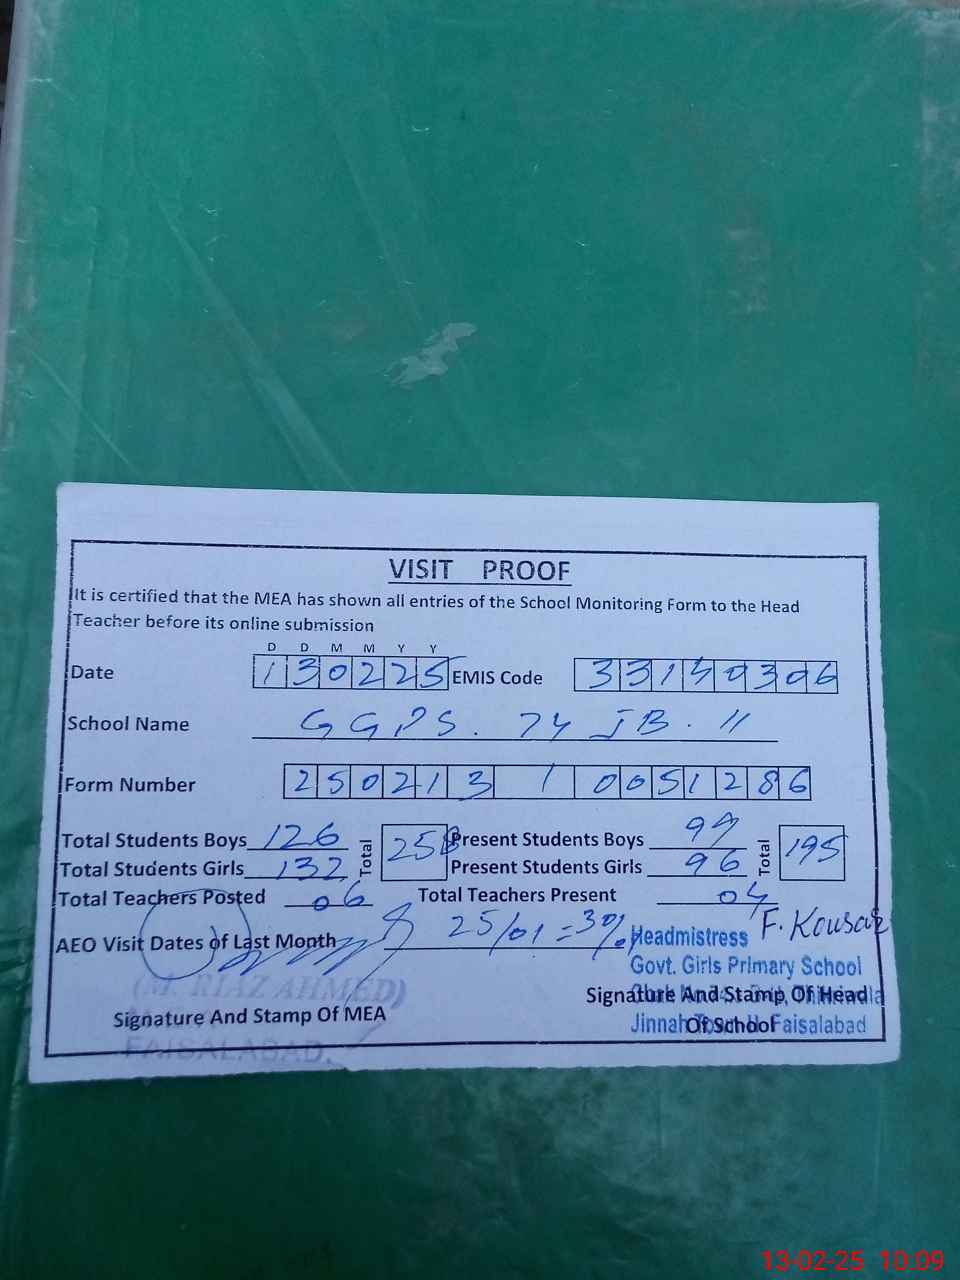 VISIT PROOF
It is certified that the MEA has shown all entries of the School Monitoring Form to the Head
Teacher before its online submission
D D M M Y Y
Date 130225 EMIS Code 33140306
School Name GGPS. 74 JB. II
Form Number 250213 1 0051286
Total Students Boys 126 Total 258 Present Students Boys 99 Total 195
Total Students Girls 132 Present Students Girls 96
Total Teachers Posted 06 Total Teachers Present 04
AEO Visit Dates of Last Month 25/01 = 30/ F. Kousar
Headmistress
Govt. Girls Primary School
(M. RIAZ AHMED)
Signature And Stamp Of MEA Signature And Stamp Of Head
Of School
Jinnah Faisalabad
FAISALABAD.
13-02-25 10:09